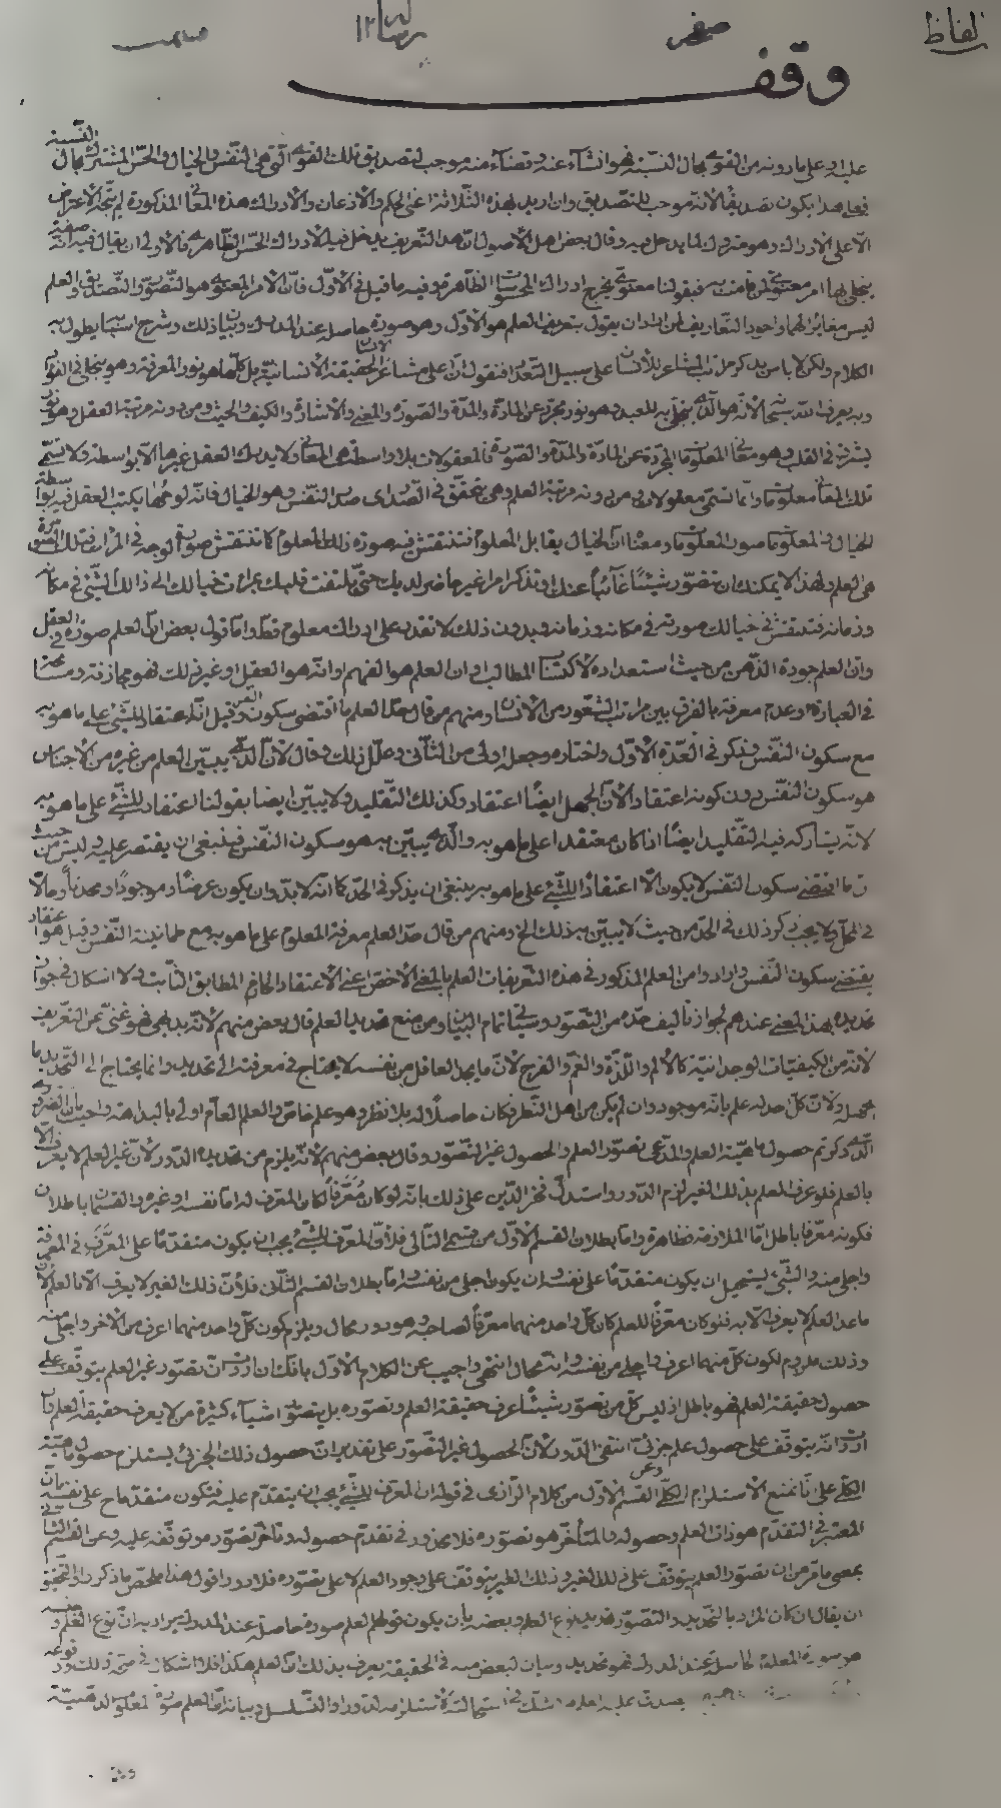 لفاظ
صفحه
رساله ١٢
وقف
على ما دونه من القوى بحال النسبة فهو انشاء عنه وقضاء منه موجب لتصديق تلك القوى التي هي النفس والخيال والحس المشترك بحال النسبة
فعلى هذا يكون تصديقا لانه موجب للتصديق وان اريد بهذه الثلاثة اعنى الحكم والاذعان والادراك هذه المعانى المذكورة لم يتجه الاعتراض
الا على الادراك وهو متروك لما يدخل فيه وقال بعض اهل الاصول ان هذا التعريف يدخل فيه الادراك الحس الظاهرى فالاولى ان يقال فيه انه صفة
يتجلى بها امر معنوى لمن قامت به فبقولنا معنوى يخرج ادراك المحسوسات الظاهرة وفيه ما قيل في الاول فان الامر المعنوى هو التصور والتصديق والعلم
ليس مغايرا لهما واجود التعاريف لمن اراد ان يقول بتعريف العلم هو الاول وهو صورة حاصلة عند المدرك وبيان ذلك وشرح اسبابه يطول به
الكلام ولكن لا باس بذكر مراتب المشاعر للانسان على سبيل التعداد فنقول ان اعلى مشاعر الحقيقة الانسانية بل كلها هو نور المعرفة وهو يتجلى في الفؤاد
وبه يعرف الله سبحانه لانه هو الذى يتجلى به للعبد وهو نور مجرد عن المادة والمدة والصورة والمعنى والاشارة والكيف والحيث ومن دونه مرتبة العقل وهو نور
يشرق في القلب وهو معانى المعلومات المجردة عن المادة والمدة والصورة فالمعقولات بلا واسطة هى المعانى ولا يدرك العقل غيرها الا بواسطة ولا تسمى
تلك المعانى معلومات وانما تسمى معقولات ومن دونه مرتبة العلم وهى تتحقق في الصدر اى صدر النفس وهو الخيال فانه لوحها يكتب العقل فيه بواسطة
الخيال والمعلومات صور المعلومات ومعنا ان الخيال يقابل المعلوم فتنتقش فيه صورة ذلك المعلوم كما تنتقش صورة الوجه في المرآة فتلك الصورة
هى العلم ولهذا لا يمكنك ان تتصور شيئا غائبا عنك او تذكر امرا غير حاضر لديك حتى يلتفت قلبك بمرآة خيالك الى ذلك الشئ في مكانه
وزمانه فتنتقش في خيالك صورته في مكانه وزمانه وبدون ذلك لا تقدر على ادراك معلوم قط واما قول بعض ان العلم صورة في العقل
وان العلم جودة الذهن من حيث استعداده لاكتساب المطالب او ان العلم هو الفهم او انه هو العقل او غير ذلك فهو مجازفة
في العبارة وعدم معرفة بالفرق بين مراتب الشعور من الانسان ومنهم من قال حد العلم ما اقتضى سكون النفس وقيل انه اعتقاد للشئ على ما هو به
مع سكون النفس وذكر في العدة الاول واختاره وجعله اولى من الثانى وعلل ذلك وقال لان الذى يبين العلم من غيره من الاجناس
هو سكون النفس دون كونه اعتقادا لان الجهل ايضا اعتقاد وكذلك التقليد ولا يبين ايضا بقولنا اعتقاد للشئ على ما هو به
لانه يشاركه فيه التقليد ايضا اذا كان معتقدا على ما هو به والذى يبين به هو سكون النفس فينبغى ان يقتصر عليه وليس من حيث
ان ما اقتضى سكون النفس لا يكون الا اعتقادا للشئ على ما هو به ينبغى ان يذكر في الحد كما انه لا بد وان يكون عرضا وموجودا ومحدثا وحالا
في المحل ولا يجب ذكر ذلك في الحد من حيث لا يبين به ذلك الخ ومنهم من قال حد العلم معرفة المعلوم على ما هو به مع طمانينة النفس وقيل هو اعتقاد
يقتضى سكون النفس وارادوا من العلم المذكور في هذه التعريفات العلم بالمعنى الاخص اعنى الاعتقاد الجازم المطابق الثابت ولا اشكال في جواز
تحديده بهذا المعنى عندهم لجواز تاليف حده من التصور وسياتى تمام البيان ومن منع تحديد العلم قال بعض منهم لانه بديهى فهو غنى عن التعريف
لانه من الكيفيات الوجدانية كالالم واللذة والغم والفرح لان ما يجده العاقل من نفسه لا يحتاج في معرفته الى تحديد وانما يحتاج الى التحديد ما
يجهل ولان كل احد له علم بانه موجود وان لم يكن من اهل النظر فكان حاصلا له بلا نظر وهو علم خاص والعلم العام اولى بالبداهة واجيب بان الضرورى
الذى ذكرتم حصول ماهية العلم والمدعى تصور العلم والحصول غير التصور وقال بعض منهم لانه يلزم من تحديده الدور لان غير العلم لا يعرف الا
بالعلم فلو عرف العلم بذلك الغير لزم الدور واستدل فخر الدين على ذلك بانه لو كان معرفا لكان المعرف له اما نفسه او غيره والقسمان باطلان
فكونه معرفا باطل اما الملازمة فظاهرة واما بطلان القسم الاول من قسمى التالى فلان المعرف للشئ يجب ان يكون متقدما على المعرف في المعرفة
واجلى منه والشئ يستحيل ان يكون متقدما على نفسه وان يكون اجلى من نفسه واما بطلان القسم الثانى فلان ذلك الغير لا يعرف الا بالعلم لان
ما عدا العلم لا يعرف الا به فلو كان معرفا للعلم كان كل واحد منهما معرفا لصاحبه وهو دور محال ويلزم كون كل واحد منهما اعرف من الاخر واجلى منه
وذلك ملزوم لكون كل منهما اعرف واجلى من نفسه وانه محال انتهى واجيب عن الكلام الاول بانك ان اردت ان تصور غير العلم يتوقف على
حصول حقيقة العلم فهو باطل اذ ليس كل من تصور شيئا عرف حقيقة العلم وتصوره بل يتصور اشياء كثيرة من لا يعرف حقيقة العلم وان
اردت انه يتوقف على حصول علم جزئى انتفى الدور لان الحصول غير التصور على تقدير ان حصول ذلك الجزئى يستلزم حصول ماهية
الكلى على انا نمنع الاستلزام الكلى وعن القسم الاول من كلام الرازى في قوله ان المعرف للشئ يجب ان يتقدم عليه فيكون متقدما على نفسه بان
المعتبر في التقدم هو ذات العلم وحصوله والمتأخر هو تصوره فلا محذور في تقدم حصوله وتأخر تصوره وتوقفه عليه وعن القسم الثانى
بمعنى ما مر من ان تصور العلم يتوقف على ذلك الغير وذلك الغير يتوقف على وجود العلم لا على تصوره فلا دور اقول هذا ملخص ما ذكروا والتحقيق
ان يقال ان كان المراد بالتحديد والتصور تحديد نوع العلم وبعضه بان يكون قولهم العلم صورة حاصلة عند المدرك يراد به ان نوع العلم
هو صورة المعلوم الحاصلة عند المدرك فهو تحديد وبيان لبعض منه في الحقيقة يعرف بذلك ان العلم هكذا فلا اشكال في صحة ذلك
يصدق عليه العلم فلا شك في استحالته لاستلزامه الدور او التسلسل وبيانه ان العلم صورة المعلوم الذهنية